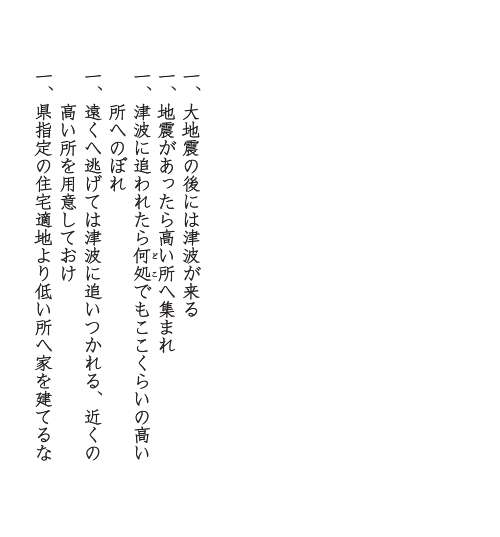 一、大地震の後には津波が来る
一、地震があったら高い所へ集まれ
一、津波に追われたら何処でもここくらいの高い
所へのぼれ
一、遠くへ逃げては津波に追いつかれる、近くの
高い所を用意しておけ
一、県指定の住宅適地より低い所へ家を建てるな